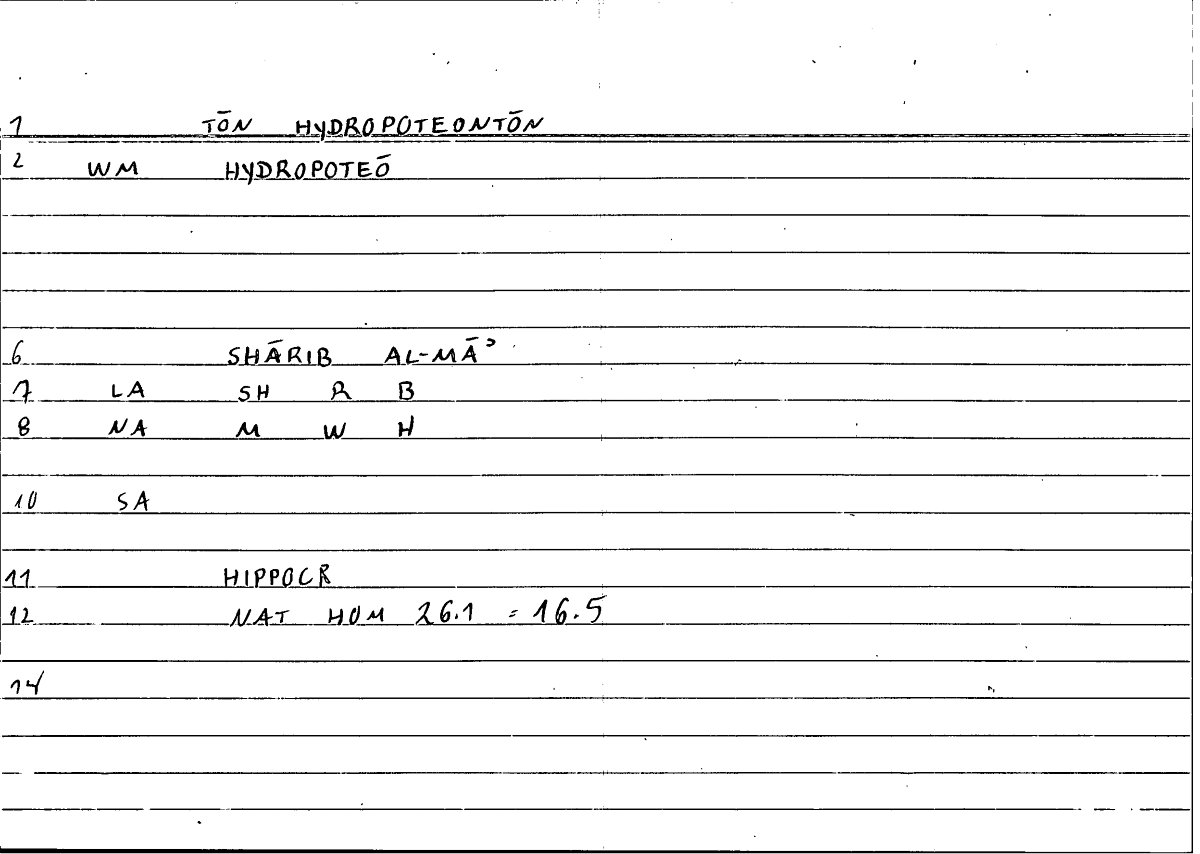 1 TŌN HYDROPOTEONTŌN
2 WM HYDROPOTEŌ
6 SHĀRIB AL-MĀʾ
7 LA SH R B
8 NA M W H
10 SA
11 HIPPOCR
12 NAT HOM 26.1 = 16.5
14